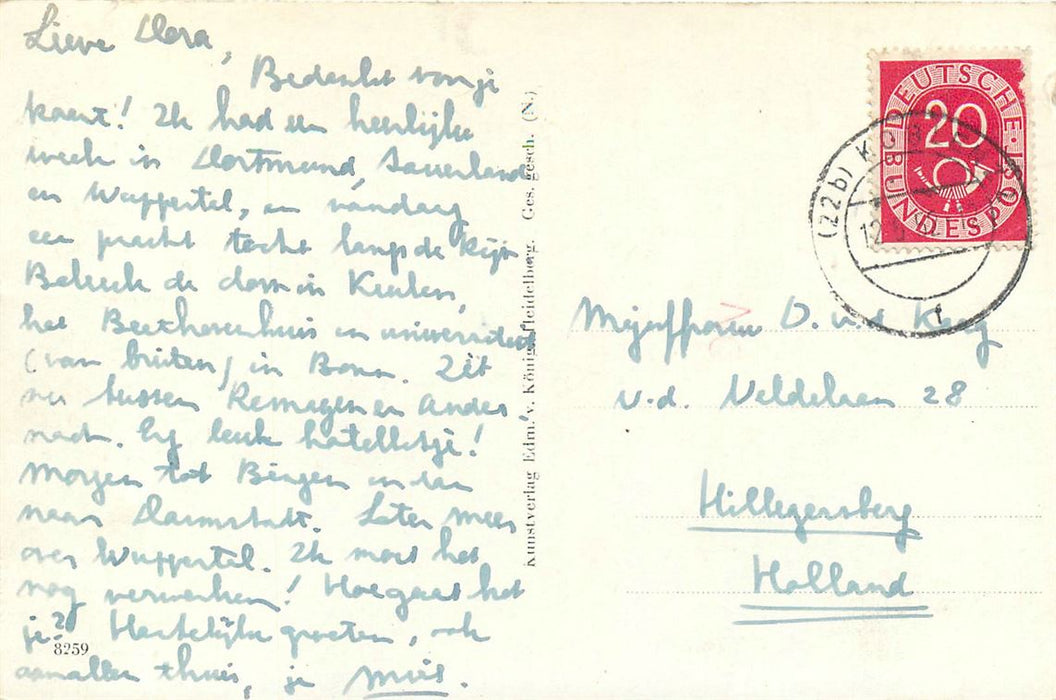 Lieve Dora,
Bedankt voor je
kaart! Ik had een heerlijke
week in Dortmund, Sauerland
en Wuppertal, en vandaag
een pracht tocht langs de Rijn
Bekeek de dom in Keulen,
het Beethovenhuis en universiteit
(van buiten) in Bonn. Zit
nu tussen Remagen en Ander
nach. Erg leuk hotelletje!
Morgen tot Bingen en dan
naar Darmstadt. Later meer
over Wuppertal. Ik moet het
nog verwerken! Hoe gaat het
je? Hartelijke groeten, ook
aan allen thuis, je
8259
Kunstverlag Edm. v. König, Heidelberg. Ges. gesch. (N.)
DEUTSCHE
BUNDESPOST
20
(22b)
12
f
Mejuffrouw D. v. d.
v. d. Veldelaan 28
Hillegersberg
Holland